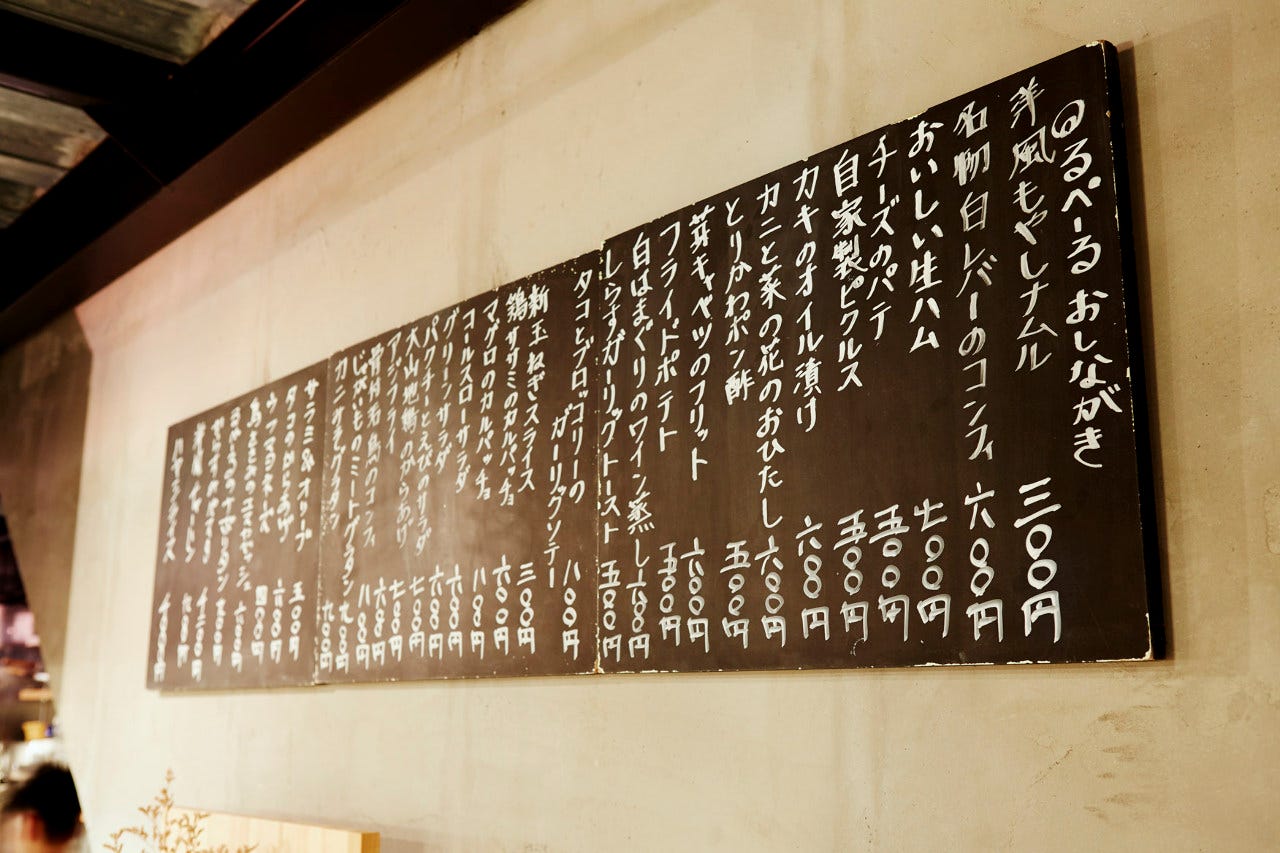 るぺーる おしながき
洋風もやしナムル 三〇〇円
名物白レバーのコンフィ 六〇〇円
おいしい生ハム 七〇〇円
チーズのパテ 五〇〇円
自家製ピクルス 五〇〇円
カキのオイル漬け 六〇〇円
カニと菜の花のおひたし 六〇〇円
とりかわポン酢 五〇〇円
芽キャベツのフリット 六〇〇円
フライドポテト 五〇〇円
白はまぐりのワイン蒸し 六〇〇円
しらすガーリックトースト 五〇〇円
タコとブロッコリーの
ガーリックソテー 八〇〇円
新玉ねぎスライス 三〇〇円
鶏ササミのカルパッチョ 六〇〇円
マグロのカルパッチョ 八〇〇円
コールスローサラダ 六〇〇円
グリーンサラダ 六〇〇円
パクチーとえびのサラダ 七〇〇円
大山地鶏のからあげ 七〇〇円
アジフライ 六〇〇円
骨付もも鳥のコンフィ 八〇〇円
じゃがいものミートグラタン 九〇〇円
カニ 九〇〇円
サラミ&オリーブ 五〇〇円
タコのからあげ 六〇〇円
四〇〇円
六〇〇円